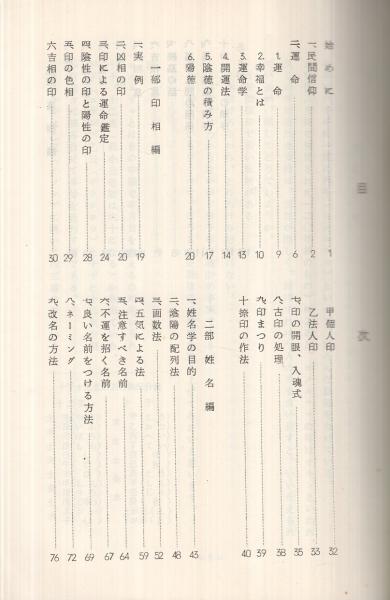 目次
始めに 1
一、民間信仰 2
二、運命 6
1. 運命 9
2. 幸福とは 10
3. 運命学 13
4. 開運法 14
5. 陰徳の積み方 17
6. 陽徳 20
一部 印相編
一、実例 19
二、凶相の印 20
三、印による運命鑑定 24
四、陰性の印と陽性の印 28
五、印の色相 29
六、吉相の印 30
甲個人印 32
乙法人印 33
七、印の開眼、入魂式 35
八、古印の処理 38
九、印まつり 39
十、捺印の作法 40
二部 姓名編
一、姓名学の目的 43
二、陰陽の配列法 48
三、画数法 52
四、五気による法 59
五、注意すべき名前 64
六、不運を招く名前 67
七、良い名前をつける方法 69
八、ネーミング 72
九、改名の方法 76